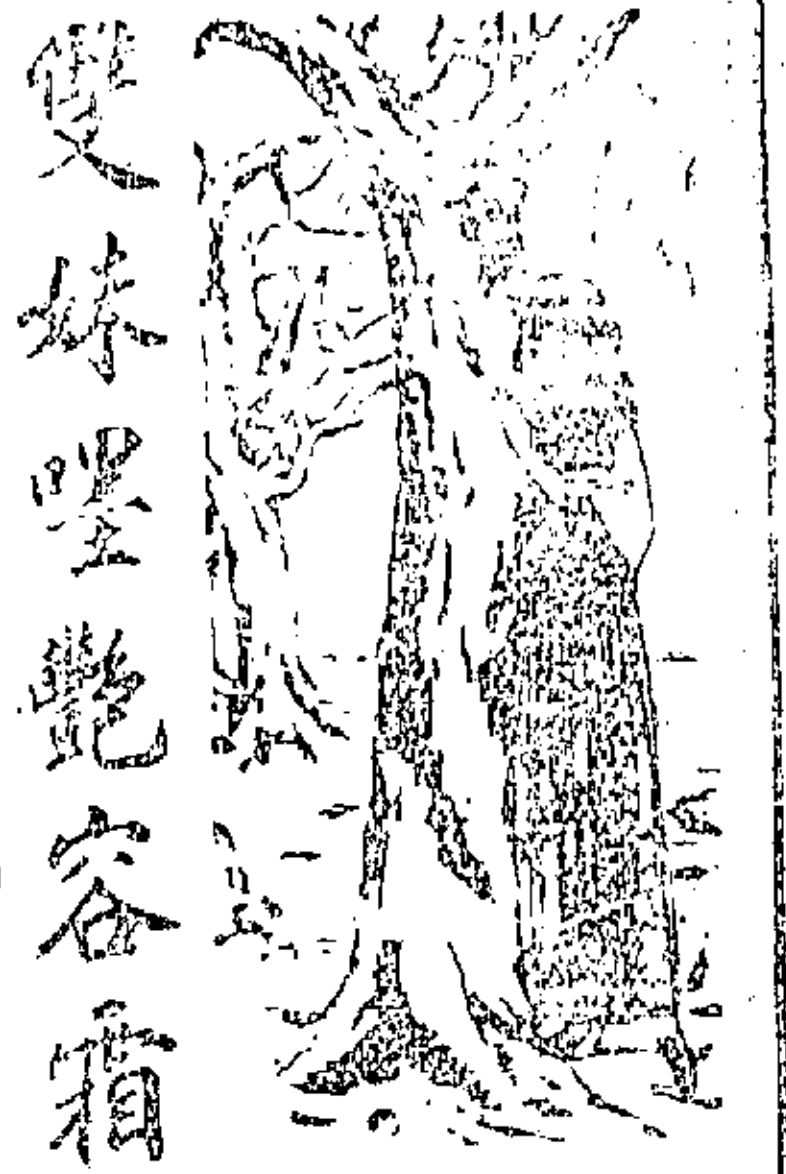 雙妹嚜艷容霜